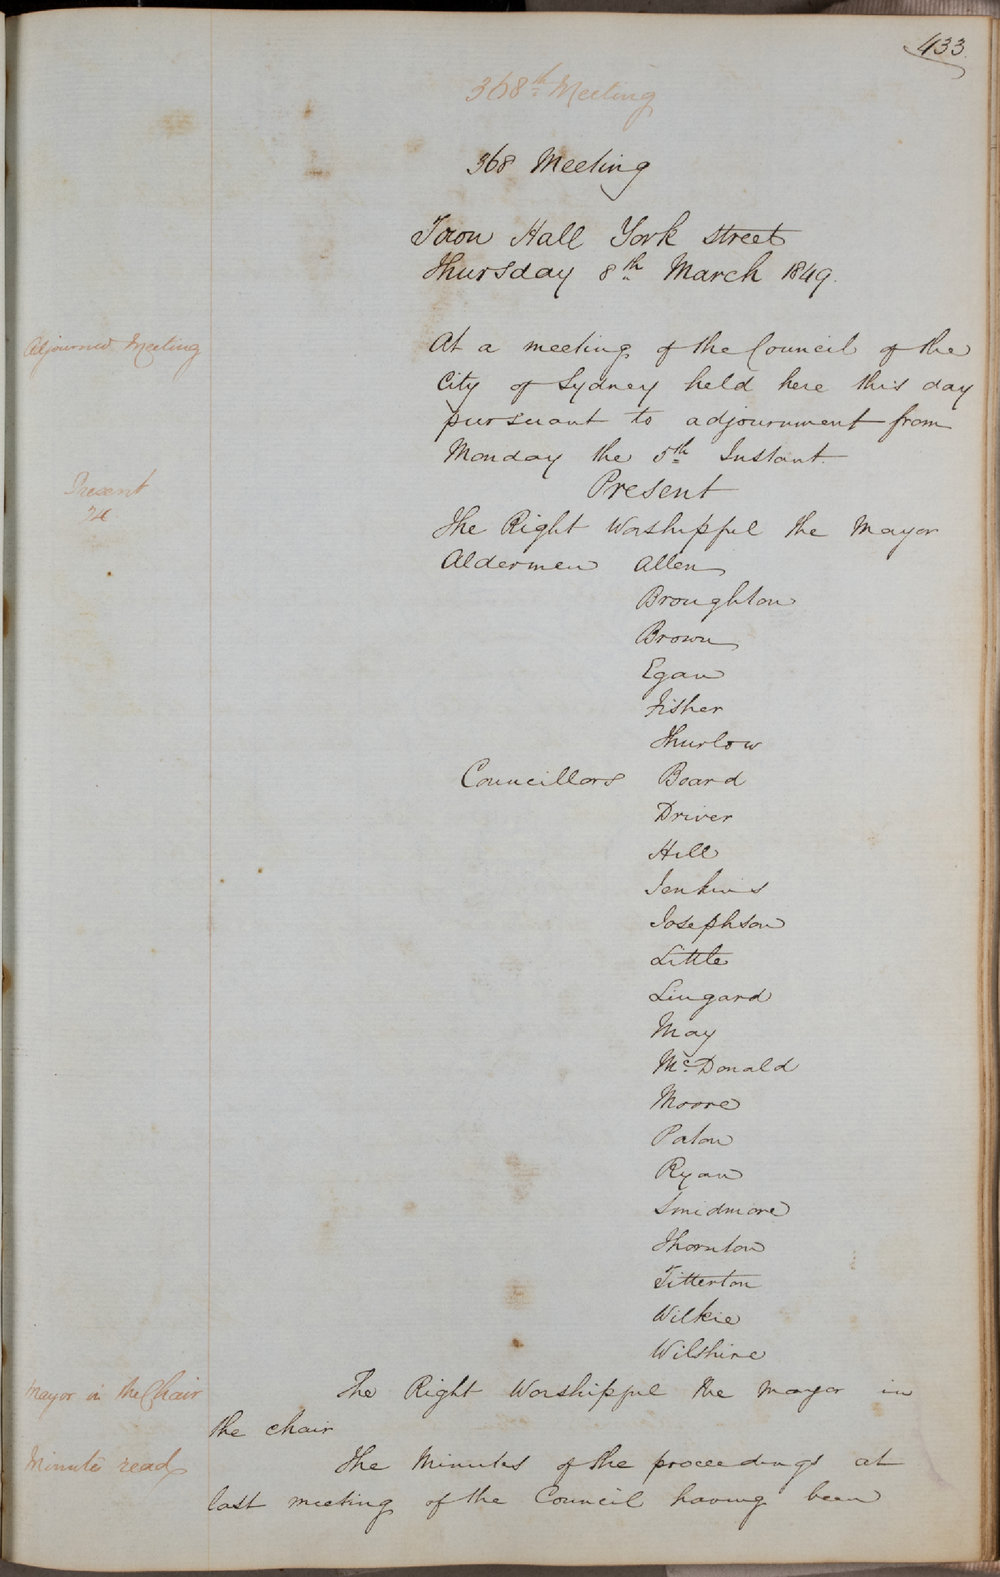 433.
368th Meeting
368 Meeting
Town Hall York street
Thursday 8th March 1849.
Adjourned Meeting
At a meeting of the Council of the
City of Sydney held here this day
pursuant to adjournment from
Monday the 5th Instant.
Present
Present
24
The Right Worshipful the Mayor
Aldermen Allen
Broughton
Brown
Egan
Fisher
Thurlow
Councillors Board
Driver
Hill
Jenkins
Josephson
Little
Lingard
May
McDonald
Moore
Paton
Ryan
Smidmore
Thornton
Titterton
Wilkie
Wilshire
Mayor in the Chair
The Right Worshipful the Mayor in
the chair
Minutes read
The Minutes of the proceedings at
last meeting of the Council having been